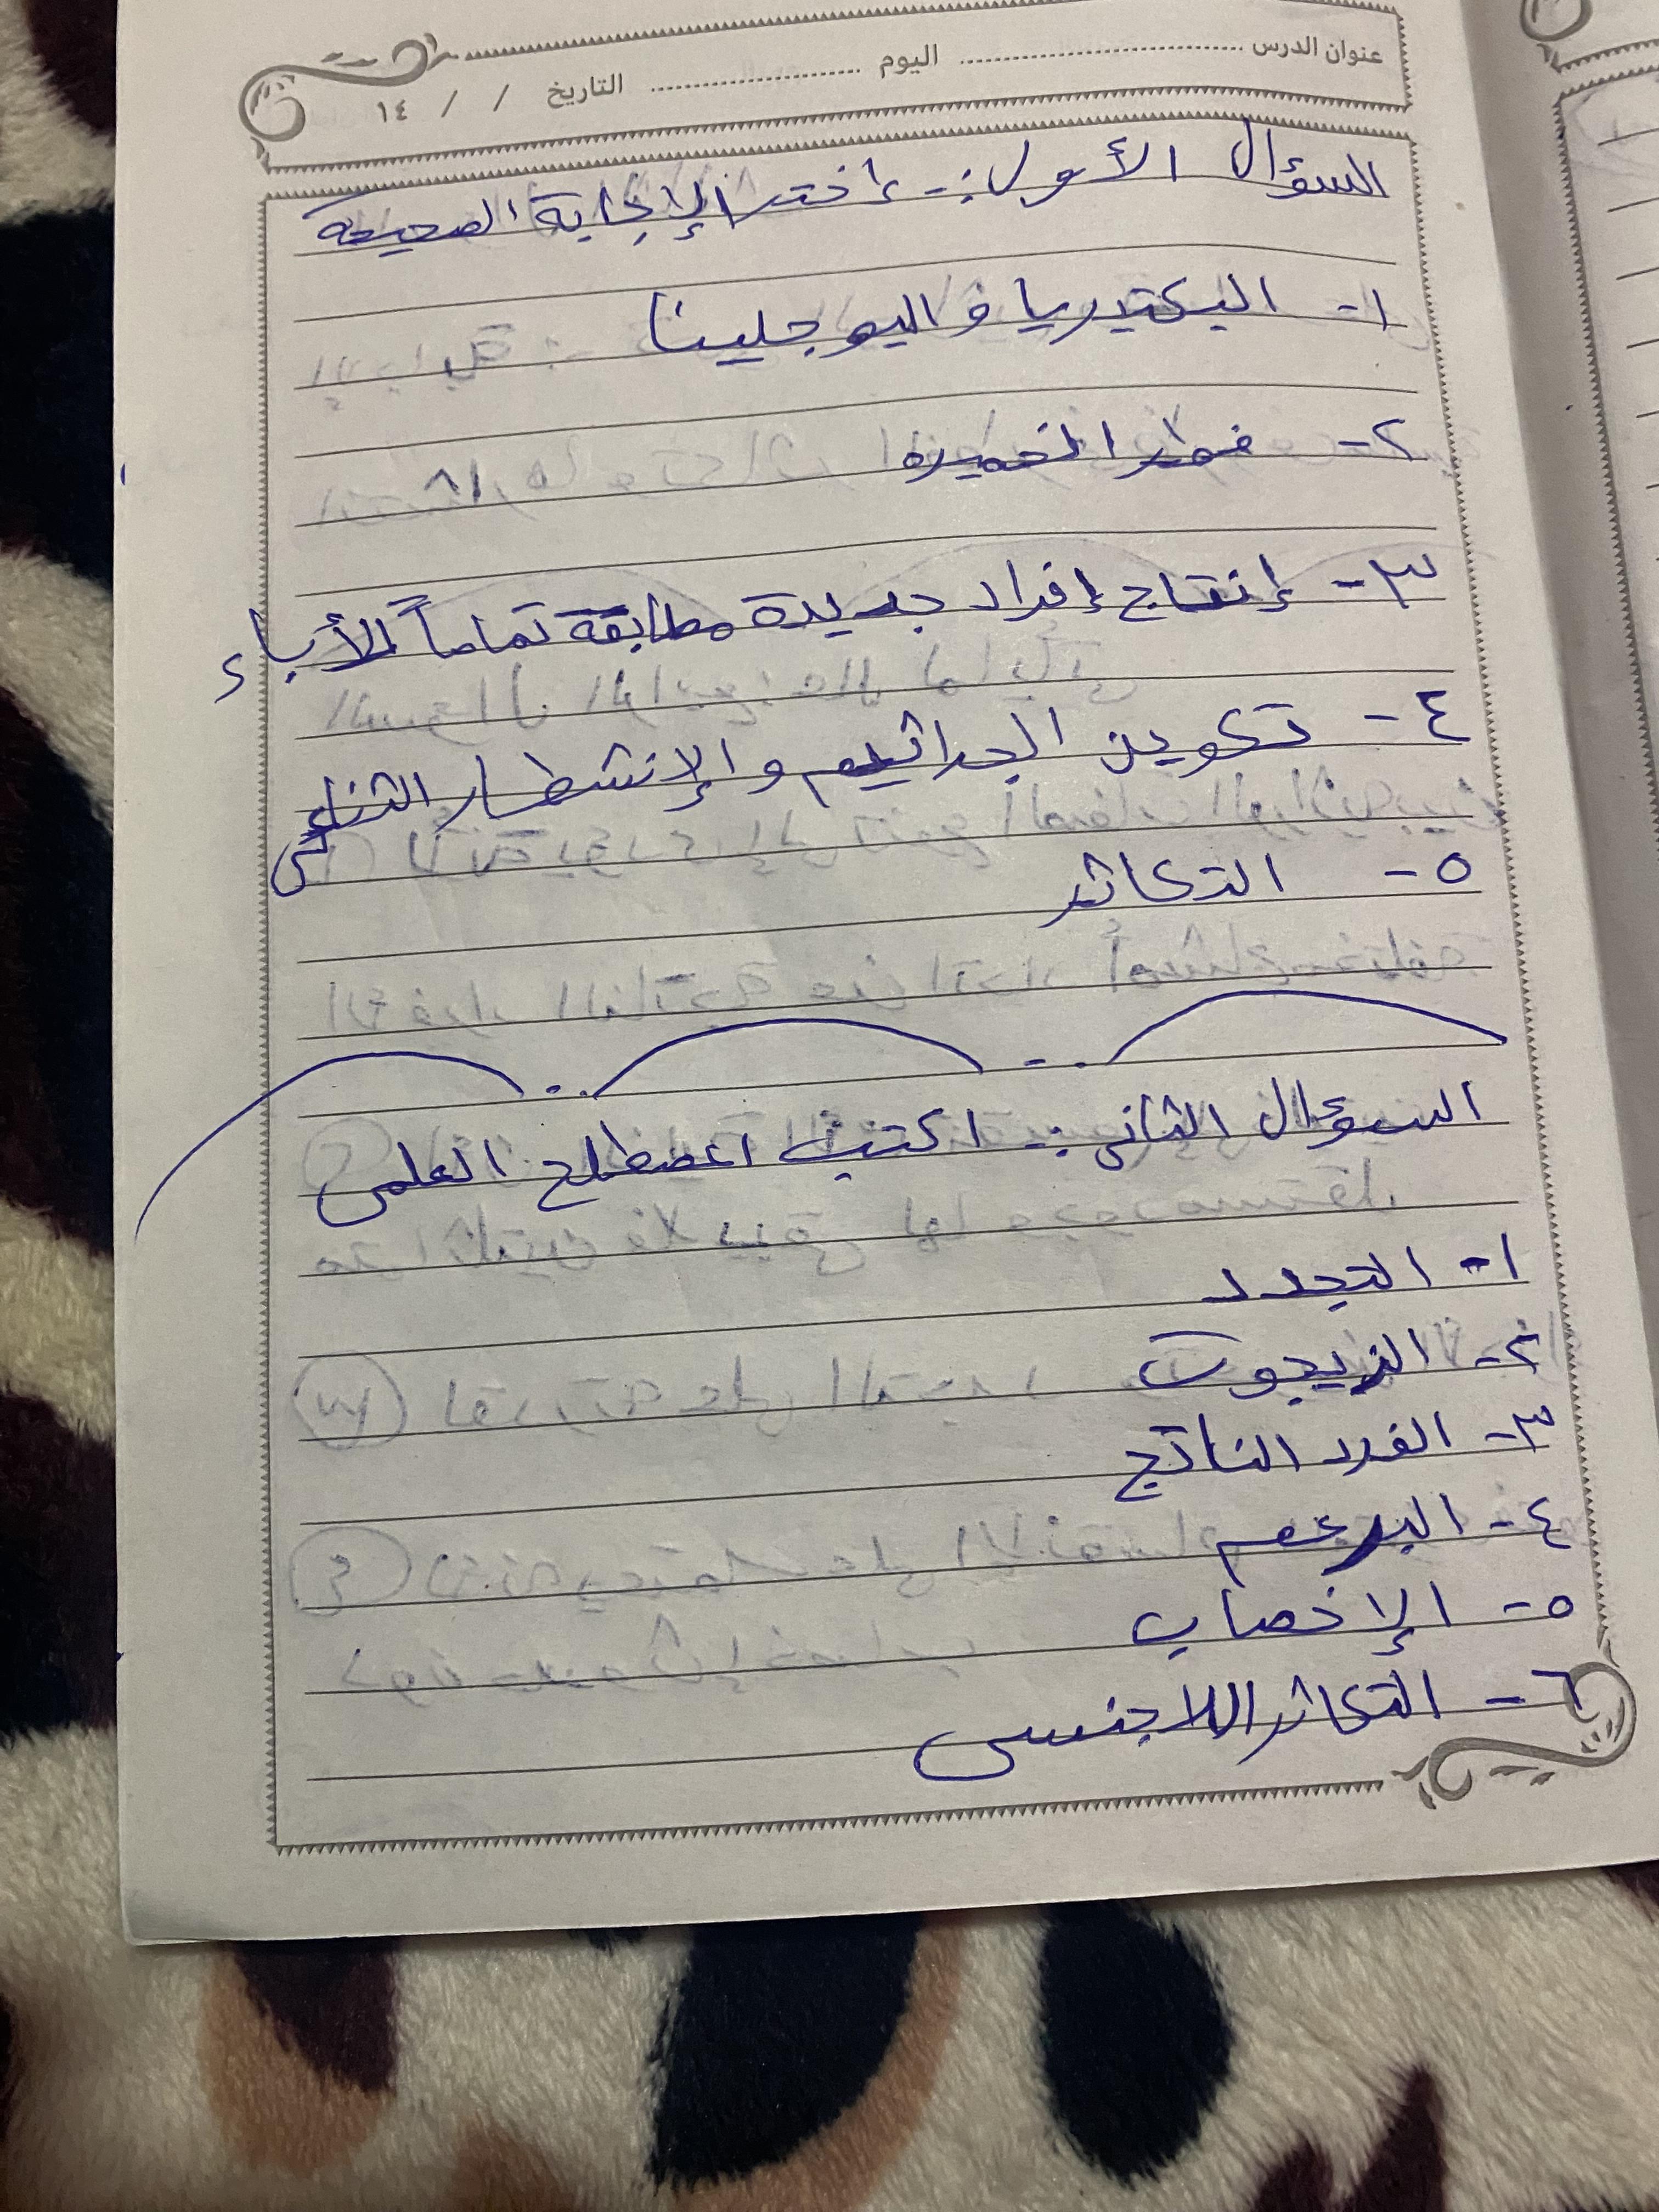 عنوان الدرس ........ اليوم ........ التاريخ / / ١٤
السؤال الأول :- اختر الإجابة الصحيحة
١- البكتيريا و اليوجلينا
٢- فطر الخميره
٣- إنتاج إفراد جديدة مطابقة تماماً للأباء
٤- تكوين الجراثيم والإنشطار الثنائى
٥- التكاثر
السؤال الثانى :- اكتب المصطلح العلمى
١- التجدد
٢- الزيجوت
٣- الفرد الناتج
٤- البرعم
٥- الإخصاب
٦- التكاثر اللاجنسى